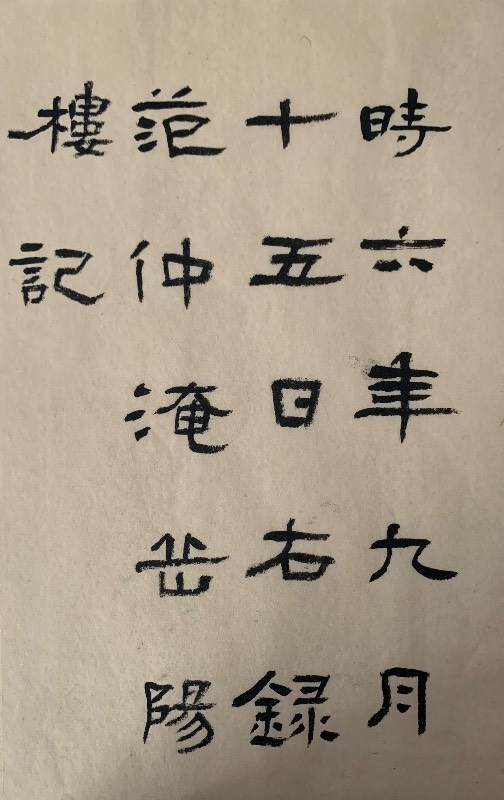 時六年九月
十五日右録
范仲淹岳陽
樓記